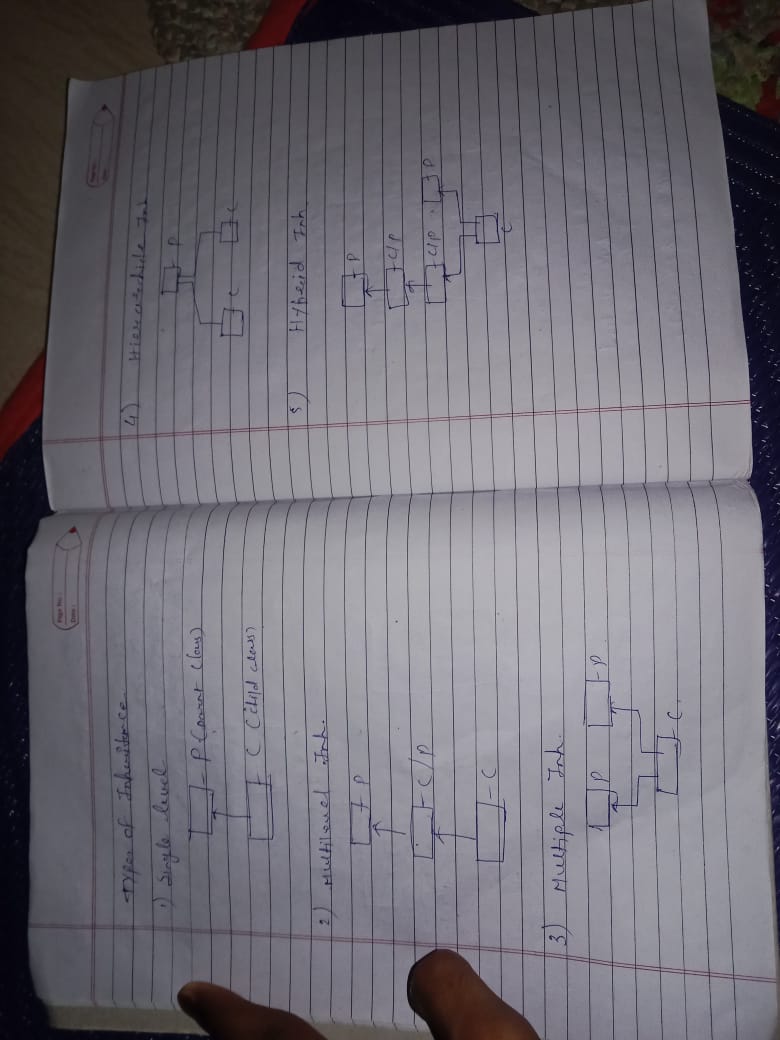 Page No.:
Date:
Types of Inheritance
1) Single level
P (parent class)
C (child class)
2) Multilevel Inh.
P
C/P
C
3) Multiple Inh.
P
P
C
4) Hierarchile Inh
P
C
C
5) Hybrid Inh.
P
C/P
C/P
P
C